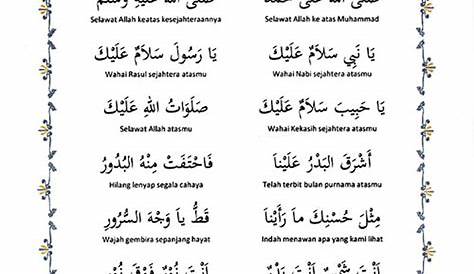 صَلَّى اللهُ عَلَى مُحَمَّدْ صَلَّى اللهُ عَلَيْهِ وَسَلَّمْ
Selawat Allah ke atas Muhammad Selawat Allah keatas kesejahteraannya
يَا نَبِي سَلاَمٌ عَلَيْكَ يَا رَسُولْ سَلاَمٌ عَلَيْكَ
Wahai Nabi sejahtera atasmu Wahai Rasul sejahtera atasmu
يَا حَبِيبْ سَلاَمٌ عَلَيْكَ صَلَوَاتُ اللهِ عَلَيْكَ
Wahai Kekasih sejahtera atasmu Selawat Allah atasmu
أَشْرَقَ الْبَدْرُ عَلَيْنَا فَاخْتَفَتْ مِنْهُ الْبُدُورُ
Telah terbit bulan purnama atasmu Hilang lenyap segala cahaya
مِثْلَ حُسْنِكَ مَا رَأَيْنَا قَطُّ يَا وَجْهَ السُّرُورِ
Indah menawan apa yang kami lihat Wajah gembira sepanjang hayat
أَنْتَ شَمْسٌ أَنْتَ بَدْرٌ أَنْتَ نُوْرٌ فَوْقَ نُوْرٍ